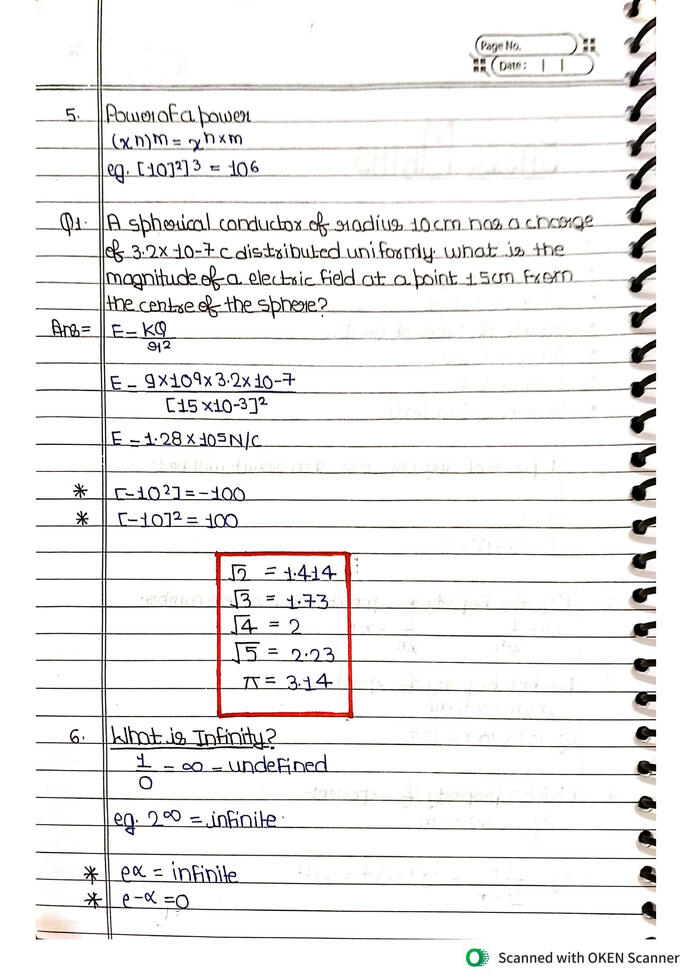 Page No.
Date : | |
5. Power of a power
(xn)m = xn×m
eg. [10]2]3 = 106
Q1. A spherical conductor of radius 10cm has a charge
of 3.2x 10-7 c distributed uniformly. what is the
magnitude of a electric field at a point 15cm from
the centre of the sphere?
Ans= E = KQ
r2
E = 9x109x3.2x10-7
[15 x10-3]2
E = 1.28 x 105 N/C
* [-102] = -100
* [-10]2 = 100
√2 = 1.414
√3 = 1.73
√4 = 2
√5 = 2.23
π = 3.14
6. What is Infinity?
1
— = ∞ = undefined
0
eg. 2∞ = infinite.
* eα = infinite
* e-α = 0
Scanned with OKEN Scanner